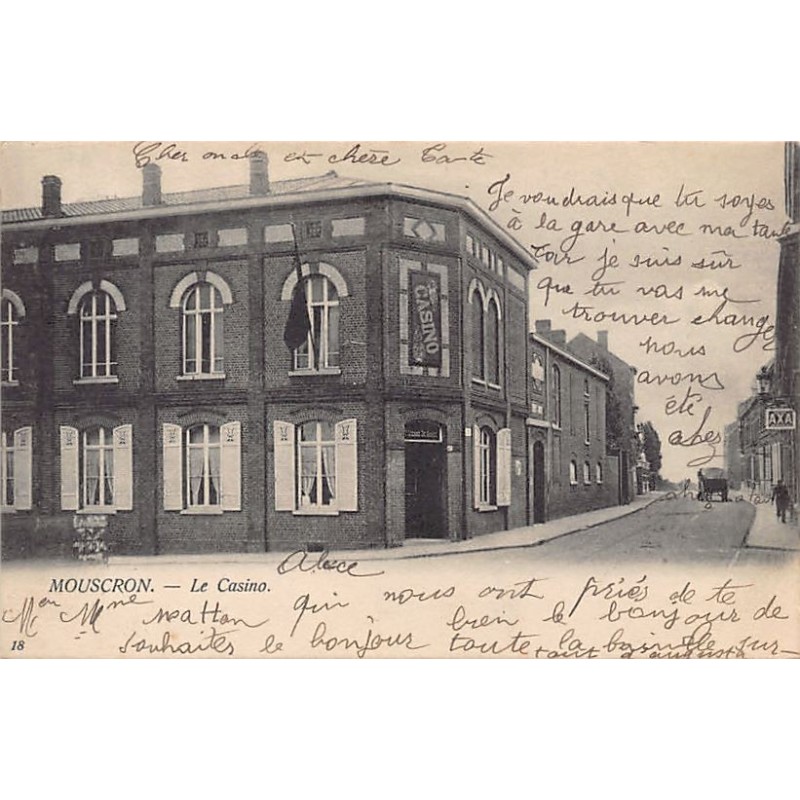 Cher oncle et chère Tante
Je voudrais que tu soyes
à la gare avec ma tante
car je suis sûr
que tu vas me
trouver changer
nous
avons
été
chez
CASINO
AXA
Alice
MOUSCRON. — Le Casino.
Mr et Mme qui nous ont priés de te
souhaiter le bonjour bien le bonjour de
toute la famille sur-
tout d'augusta
18